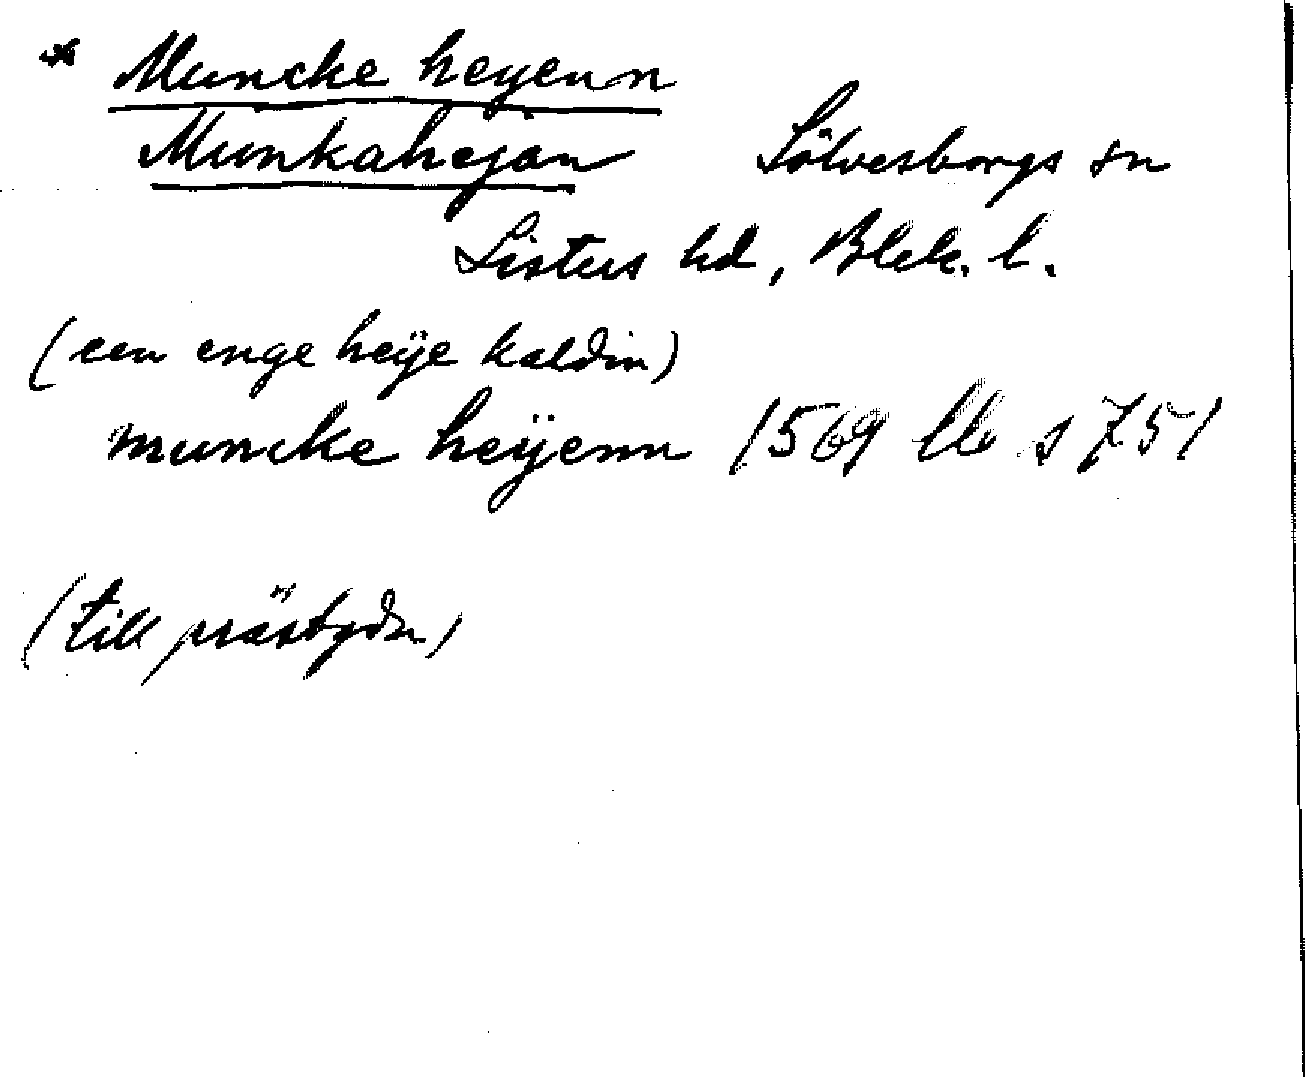 * Muncke heyenn
Munkahejan Sölvesborgs sn
Listers hd, Blek. l.
(een enge heÿe kaldin)
muncke heÿenn 1569 lb s 751
(till prästgdn)